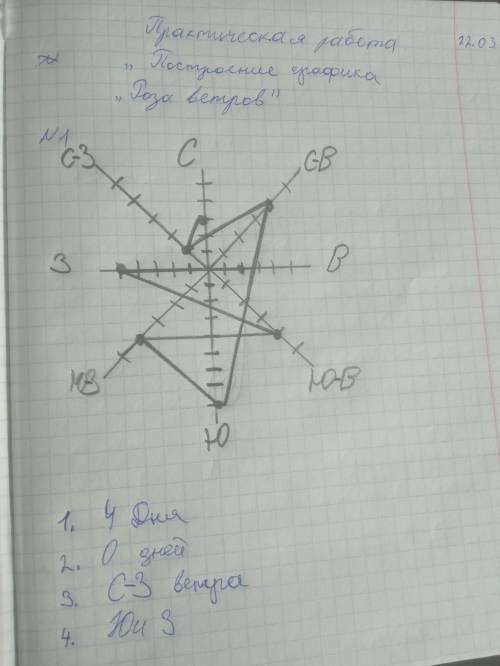 Практическая работа 22.03
„Построение графика
„Роза ветров”
№1
С-З С С-В
З В
Ю-В
Ю
1. 4 Дня
2. 0 дней
3. С-З ветра
4. Ю и З